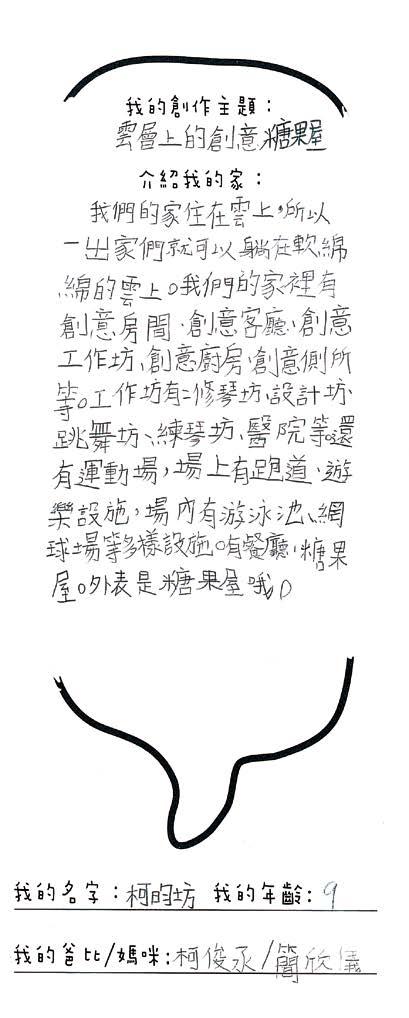 我的創作主題：
雲層上的創意糖果屋
介紹我的家：
我們的家住在雲上，所以
一出家們就可以躺在軟綿
綿的雲上。我們的家裡有
創意房間、創意客廳、創意
工作坊、創意廚房、創意側所
等。工作坊有：修琴坊、設計坊、
跳舞坊、練琴坊、醫院等。還
有運動場，場上有跑道、遊
樂設施，場內有游泳池、網
球場等多樣設施。有餐廳、糖果
屋。外表是糖果屋哦。
我的名字：柯昀坊 我的年齡：9
我的爸比/媽咪：柯俊丞/簡欣儀